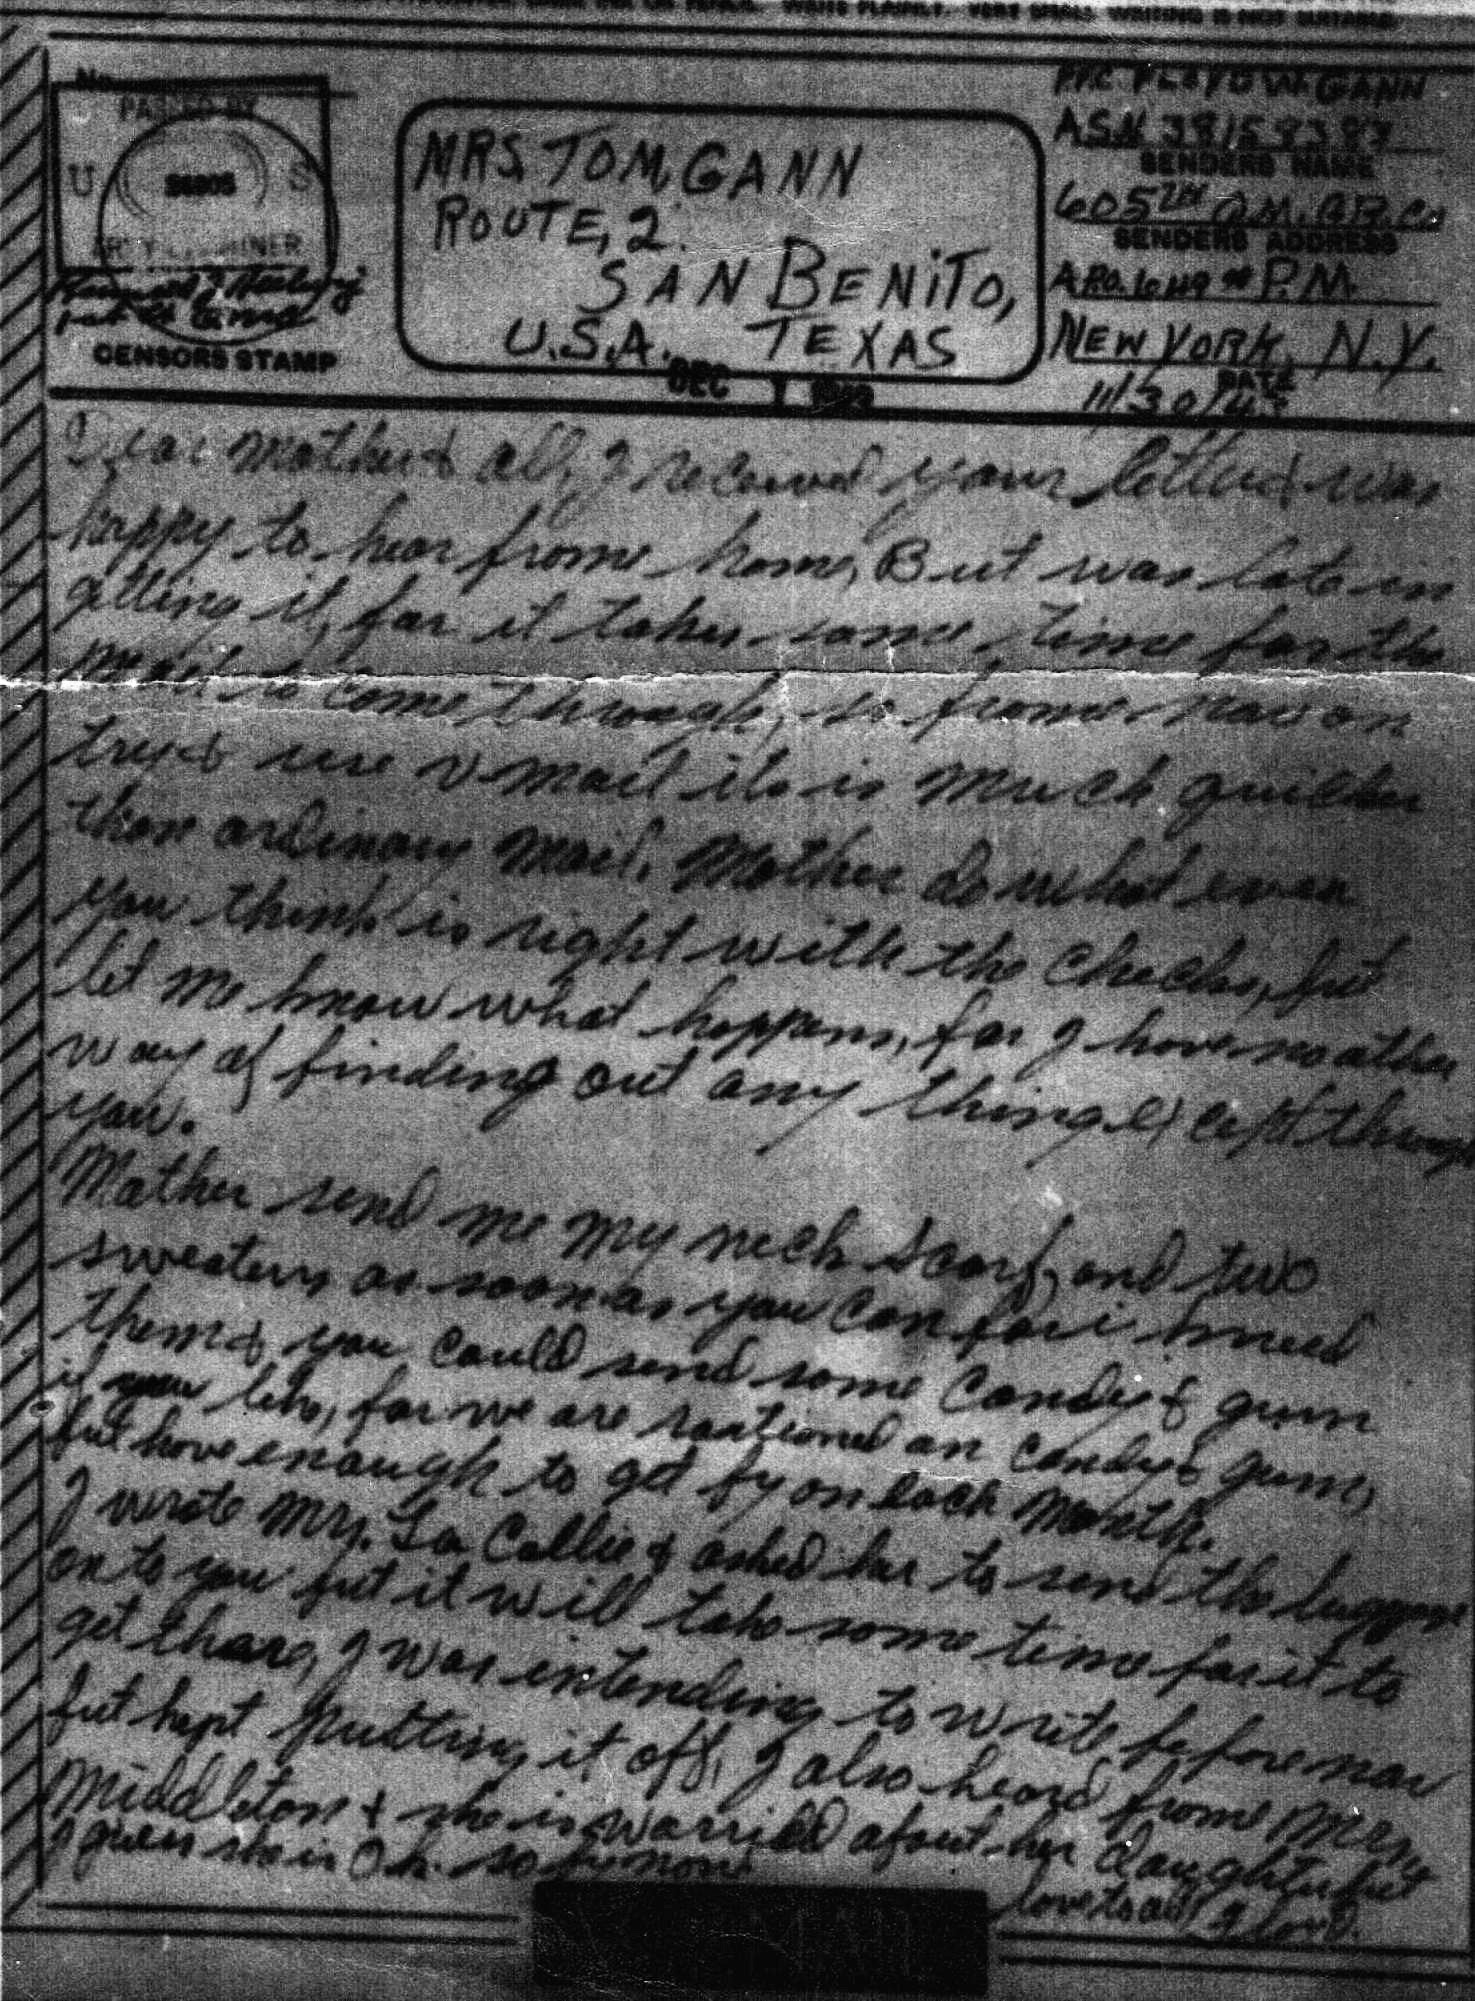 No.
PASSED BY
U S
ARMY EXAMINER
CENSORS STAMP
MRS. TOM, GANN
ROUTE, 2.
SAN BENITO,
U.S.A. TEXAS
DEC 1
PFC FLOYD W. GANN
ASN 38158383
SENDERS NAME
605TH Q.M. GR. Co
SENDERS ADDRESS
A.P.O. % P.M.
NEW YORK, N.Y.
DATE
11/30/43
Dear Mother & all, I received your letter & was
happy to hear from home, But was late in
getting it, for it takes some time for the
mail to come through, so from now on
try & use V mail its is much quicker
than ordinary mail. Mother do what ever
you think is right with the checks, but
let me know what happens, for I have no other
way of finding out any thing except through
you.
Mother send me my neck scarf, and two
sweaters as soon as you can for i need
them & you could send some candy & gum
if you like, for we are rationed on candy & gum,
but have enough to get by on each month.
I wrote Mrs. La Callie & asked her to send the luggage
on to you but it will take some time for it to
get there, I was intending to write before now
but kept putting it off, I also heard from Mrs
Middleton & she is warried about her daughter but
I guess she is O.k. so by now
love to all Floyd.